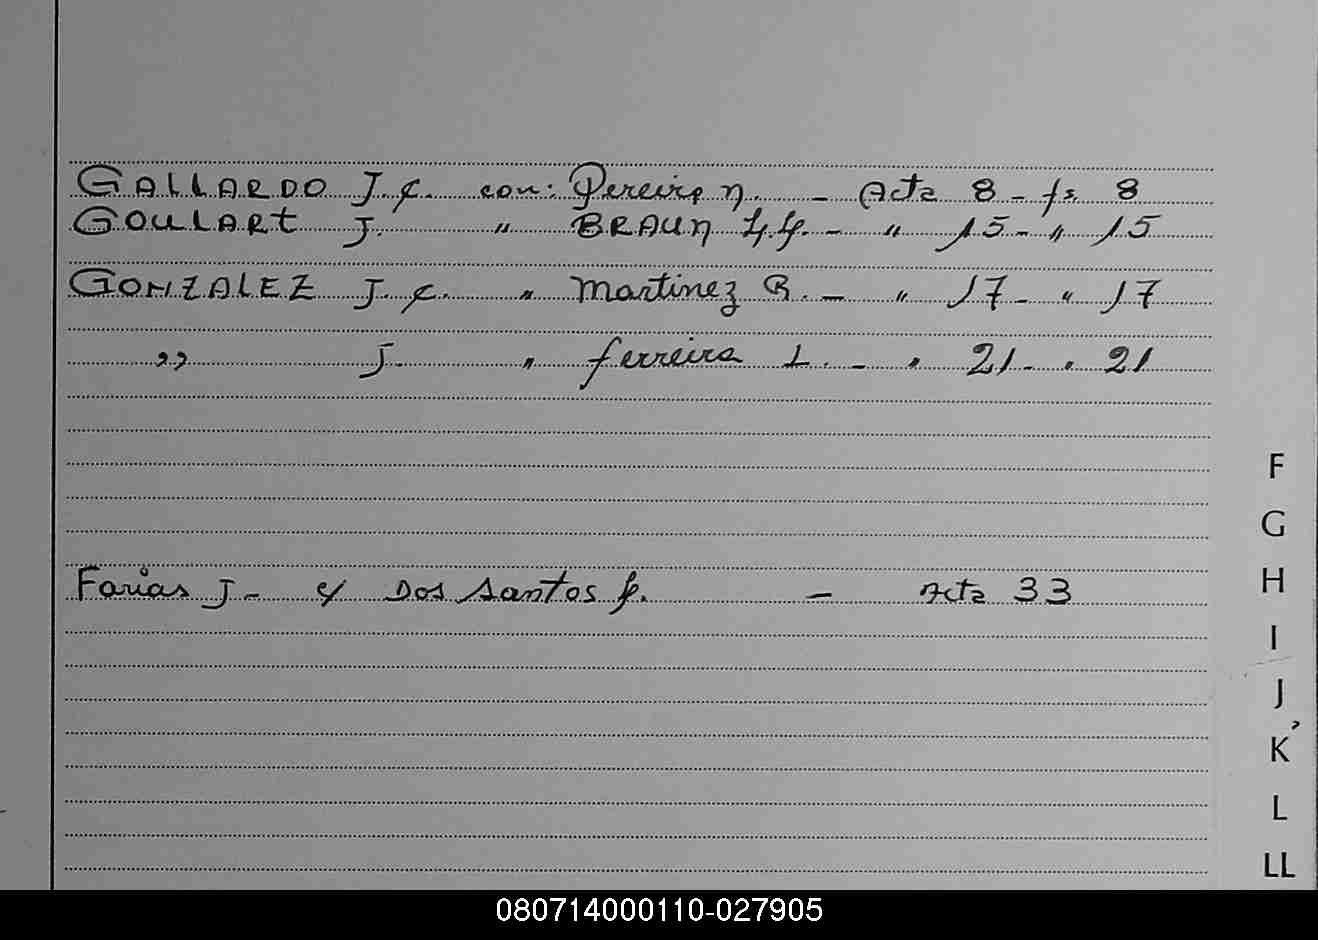 GALLARDO J.C. con: Pereira N. - Acta 8 - fs. 8
GOULART J. " BRAUN - " 15 - " 15
GONZALEZ J.C. " Martinez R. - " 17 - " 17
" J. " ferreira L. - " 21 - " 21
Farias J - c/ Dos Santos - Acta 33
F
G
H
I
J
K
L
LL
080714000110-027905